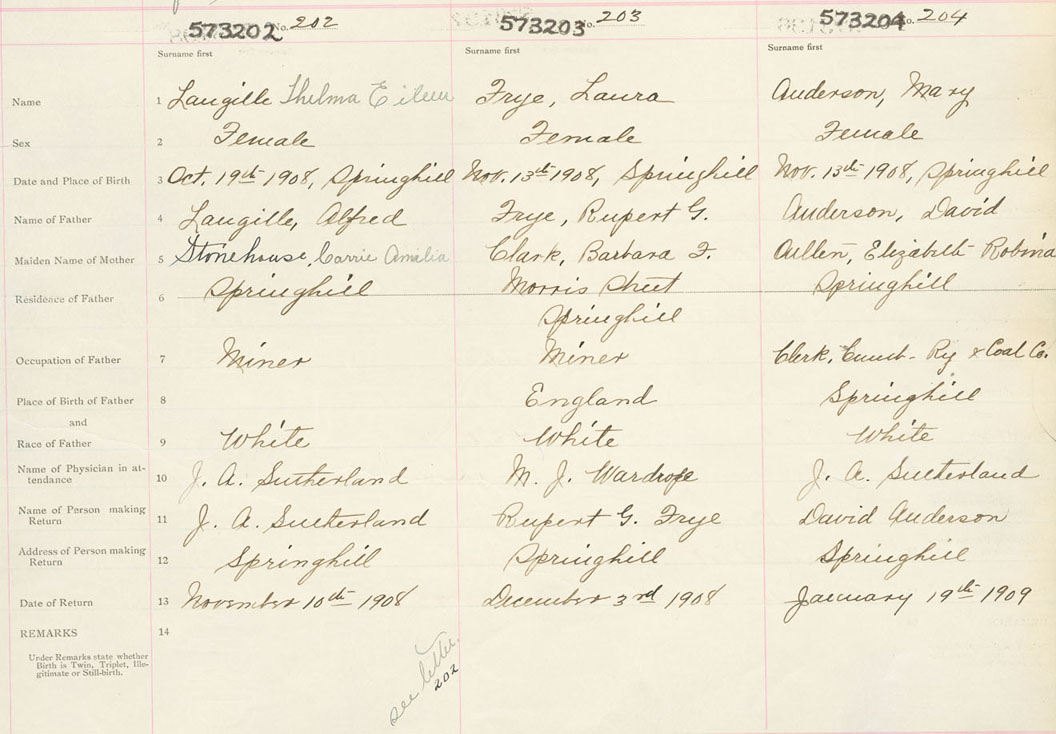 573202 No. 202 573203 No. 203 573204 No. 204
Surname first Surname first Surname first
Name 1 Langille Thelma Eileen Frye, Laura Anderson, Mary
Sex 2 Female Female Female
Date and Place of Birth 3 Oct. 19th 1908, Springhill Nov. 13th 1908, Springhill Nov. 13th 1908, Springhill
Name of Father 4 Langille, Alfred Frye, Rupert G. Anderson, David
Maiden Name of Mother 5 Stonehouse, Carrie Amalia Clark, Barbara F. Aullen, Elizabeth Robina
Residence of Father 6 Springhill Morris Street Springhill
Springhill
Occupation of Father 7 Miner Miner Clerk, Cumb- Ry & Coal Co.
Place of Birth of Father 8 England Springhill
and
Race of Father 9 White White White
Name of Physician in at-
tendance 10 J. A. Sutherland M. J. Wardrope J. A. Sutherland
Name of Person making
Return 11 J. A. Sutherland Rupert G. Frye David Anderson
Address of Person making
Return 12 Springhill Springhill Springhill
Date of Return 13 November 10th 1908 December 3rd 1908 January 19th 1909
REMARKS 14
Under Remarks state whether
Birth is Twin, Triplet, Ille-
gitimate or Still-birth.
see letter
202